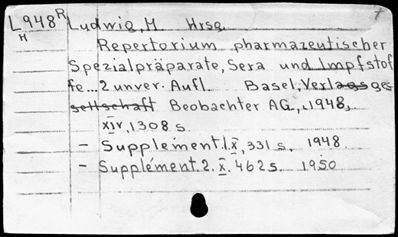 7
L948R Ludwig, M Hrsg.
H
Repertorium pharmazeutischer
Spezialpräparate, Sera und Impfstof
fe... 2 unver. Aufl. Basel, Verlagsge
sellschaft Beobachter AG, 1948,
XIV, 1308 s.
- Supplement. 1. X, 331 s. 1948
- Supplément. 2. X. 462 s. 1950